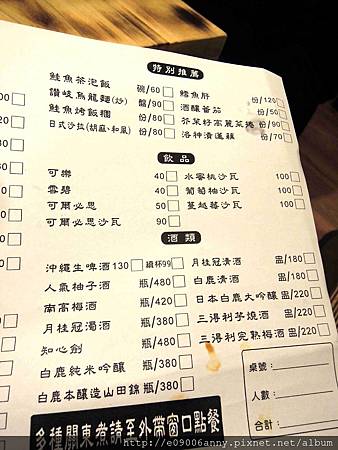 特別推薦
鮭魚茶泡飯 碗/60
讚岐烏龍麵(炒) 盤/90
鮭魚烤飯糰 份/80
日式沙拉(胡麻、和風) 份/80
鱈魚肝 份/120
酒釀番茄 份/50
芥茉籽高麗菜捲 份/90
洛神漬蓮藕 份/70
飲品
可樂 40
雪碧 40
可爾必思 50
可爾必思沙瓦 90
水蜜桃沙瓦 100
葡萄柚沙瓦 100
蔓越莓沙瓦 100
酒類
沖繩生啤酒 130 續杯99
人氣柚子酒 瓶/480
南高梅酒 瓶/420
月桂冠濁酒 瓶/380
知心劍 瓶/350
白鹿純米吟釀 瓶/380
白鹿本釀造山田錦 瓶/380
月桂冠清酒 盅/180
白鹿清酒 盅/180
日本白鹿大吟釀 盅/220
三得利芋燒酒 盅/220
三得利完熟梅酒 盅/220
桌號：
人數：
合計：
多種關東煮請至外帶窗口點餐
http://e09006anny.pixnet.net/album